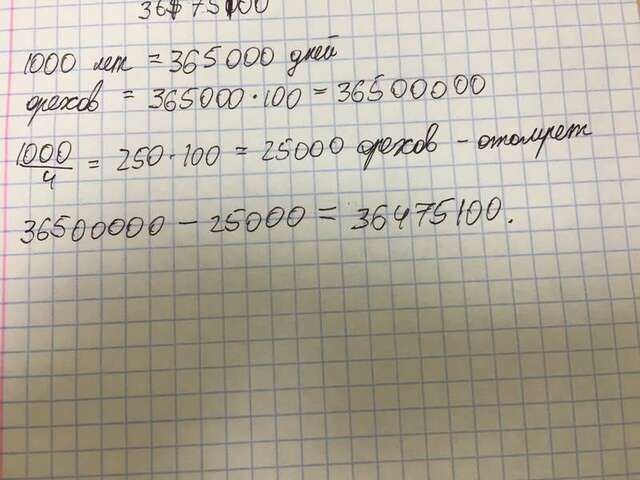 1000 лет = 365000 дней
орехов = 365000·100 = 36500000
1000/4 = 250·100 = 25000 орехов - отомрет
36500000 - 25000 = 36475100.